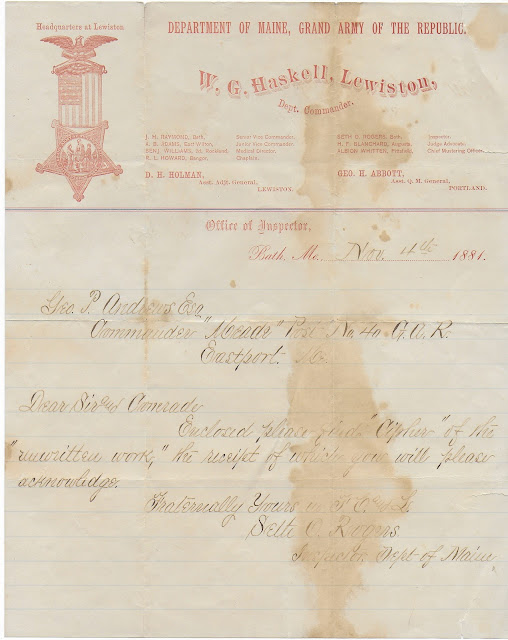 Headquarters at Lewiston.
DEPARTMENT OF MAINE, GRAND ARMY OF THE REPUBLIC.
W. G. Haskell, Lewiston,
Dept. Commander.
J. H. RAYMOND, Bath, Senior Vice Commander.
A. B. ADAMS, East Wilton, Junior Vice Commander.
BENJ. WILLIAMS, Rockland, Medical Director.
R. L. HOWARD, Bangor, Chaplain.
SETH C. ROGERS, Bath, Inspector.
M. P. BLANCHARD, Augusta, Judge Advocate.
ALBION WHITTEN, Chief Mustering Officer.
D. H. HOLMAN,
Asst. Adjt. General,
LEWISTON.
GEO. H. ABBOTT,
Asst. Q. M. General,
PORTLAND.
Office of Inspector,
Bath, Me., Nov. 4th 1881.
Geo. P. Andrews Esq
Commander "Meade" Post No. 40 G.A.R.
Eastport. Me
Dear Sir and Comrade
Enclosed please find "Cipher" of the
"unwritten work," the receipt of which you will please
acknowledge.
Fraternally Yours in F. C. and L.
Seth C. Rogers
Inspector. Dept of Maine